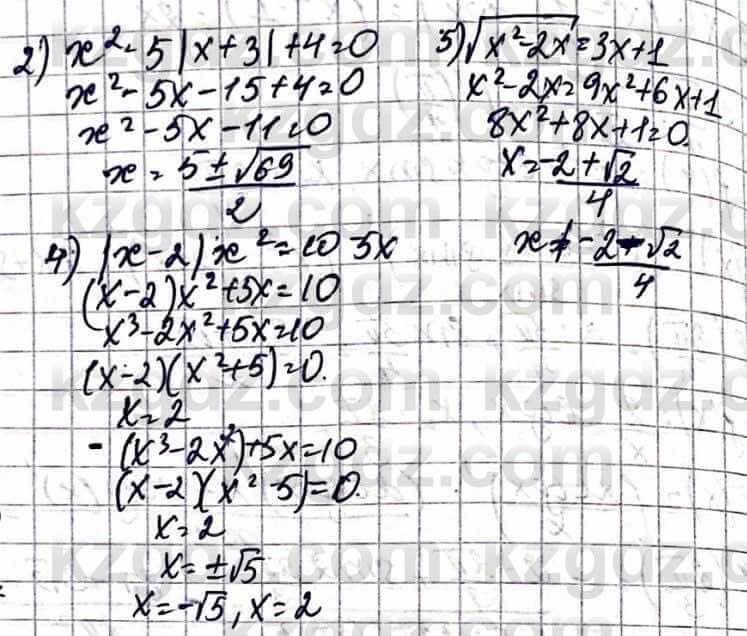 2) x² - 5|x+3|+4=0
x² - 5x - 15+4=0
x² - 5x - 11=0
x = 5±√69
2
4) |x-2|·x² = 10 5x
(x-2)x²+5x=10
x³-2x²+5x=10
(x-2)(x²+5)=0.
x=2
-(x³-2x²)+5x=10
(x-2)(x²-5)=0.
x=2
x=±√5
x=-√5, x=2
5) √x²-2x=3x+1
x²-2x=9x²+6x+1
8x²+8x+1=0.
x=-2+√2
4
x≠-2-√2
4
kzgdz.com